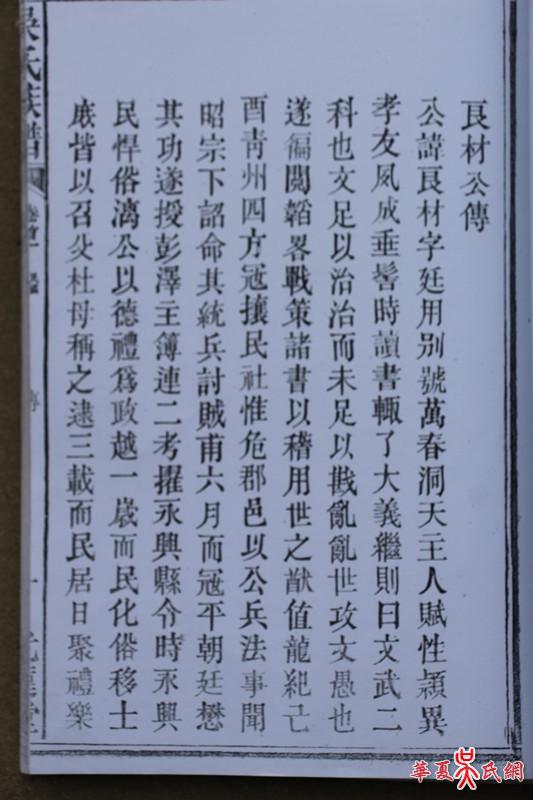 良材公傳
公諱良材字廷用别號萬春洞天主人賦性潁異
孝友夙成垂髫時讀書輙了大義繼則曰文武二
科也文足以治治而未足以戡亂亂世攻文愚也
遂徧閱韜畧戰策諸書以稽用世之猷值龍紀己
酉青州四方冦攘民社惟危郡邑以公兵法事聞
昭宗下詔命其統兵討賊甫六月而冦平朝廷懋
其功遂授彭澤主簿連二考擢永興縣令時永興
民悍俗漓公以德禮爲政越一歲而民化俗移士
庻皆以召父杜母稱之逮三載而民居日聚禮樂
吳氏族譜 卷首 傳
華夏吴氏網